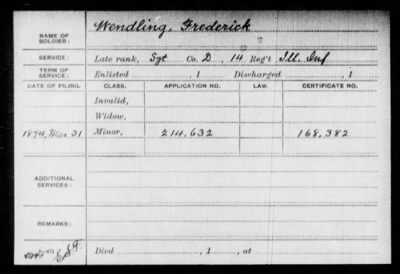 NAME OF SOLDIER: Wendling, Frederick
SERVICE: Late rank, Sgt Co. D, 14 Reg't Ill. Inf
TERM OF SERVICE: Enlisted , 1 Discharged , 1
DATE OF FILING. CLASS. APPLICATION NO. LAW. CERTIFICATE NO.
Invalid,
Widow,
1874, 31 Minor, 214,632 168,382
ADDITIONAL SERVICES:
REMARKS:
Died , 1 , at